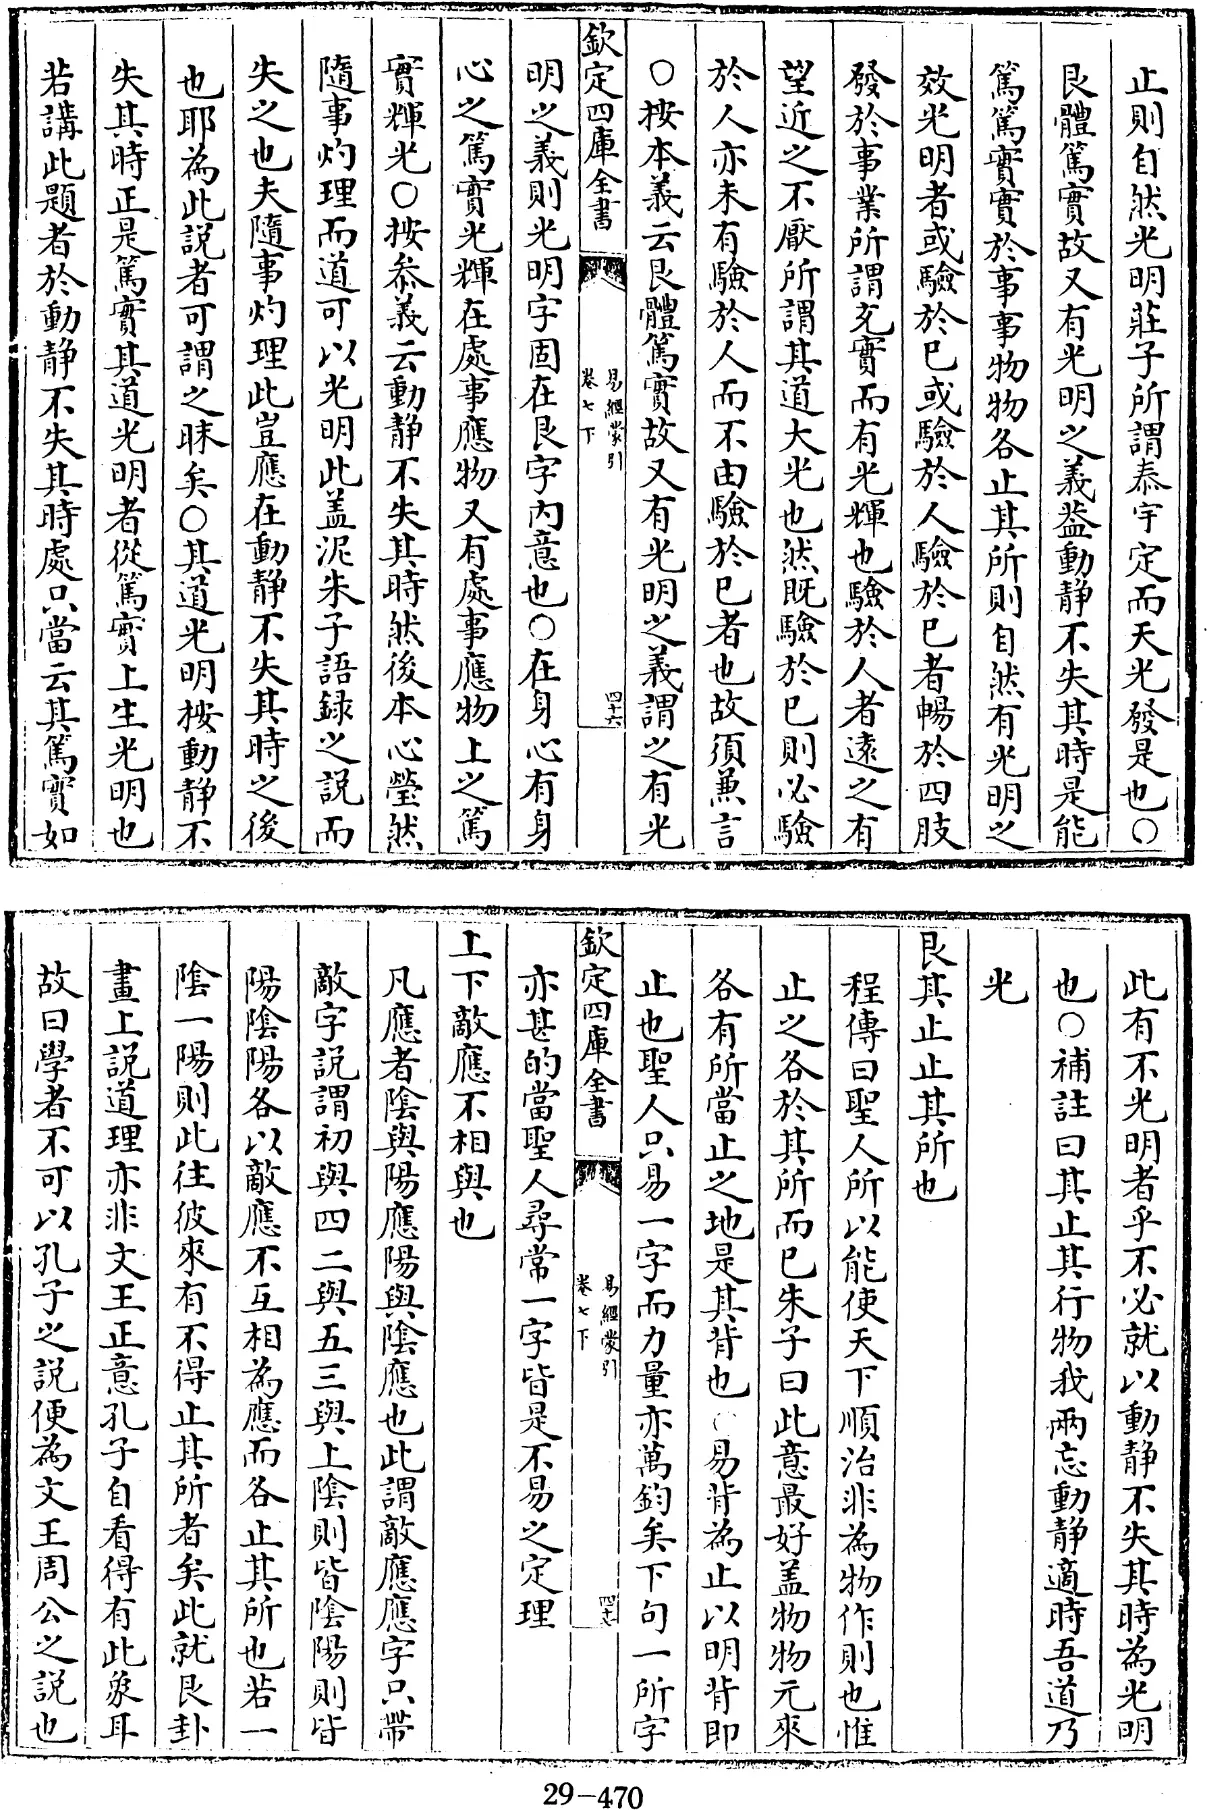 止則自然光明莊子所謂泰宇定而天光發是也○
艮體篤實故又有光明之義葢動静不失其時是能
篤篤實實於事事物物各止其所則自然有光明之
效光明者或驗於已或驗於人驗於已者暢於四肢
發於事業所謂充實而有光輝也驗於人者遠之有
望近之不厭所謂其道大光也然既驗於已則必驗
於人亦未有驗於人而不由驗於已者也故須兼言
○按本義云艮體篤實故又有光明之義謂之有光
欽定四庫全書
易經蒙引
卷七下
四十六
明之義則光明字固在艮字内意也○在身心有身
心之篤實光輝在處事應物又有處事應物上之篤
實輝光○按叅義云動静不失其時然後本心瑩然
隨事灼理而道可以光明此盖泥朱子語録之説而
失之也夫隨事灼理此豈應在動静不失其時之後
也耶為此説者可謂之昧矣○其道光明按動静不
失其時正是篤實其道光明者從篤實上生光明也
若講此題者於動静不失其時處只當云其篤實如
此有不光明者乎不必就以動静不失其時為光明
也○補註曰其止其行物我兩忘動静適時吾道乃
光
艮其止止其所也
程傳曰聖人所以能使天下順治非為物作則也惟
止之各於其所而已朱子曰此意最好盖物物元來
各有所當止之地是其背也○易背為止以明背即
止也聖人只易一字而力量亦萬鈞矣下句一所字
欽定四庫全書
易經蒙引
卷七下
亦甚的當聖人尋常一字皆是不易之定理
上下敵應不相與也
凡應者陰與陽應陽與陰應也此謂敵應應字只帶
敵字説謂初與四二與五三與上陰則皆陰陽則皆
陽陰陽各以敵應不互相為應而各止其所也若一
陰一陽則此往彼來有不得止其所者矣此就艮卦
畫上説道理亦非文王正意孔子自看得有此象耳
故曰學者不可以孔子之説便為文王周公之説也
29-470